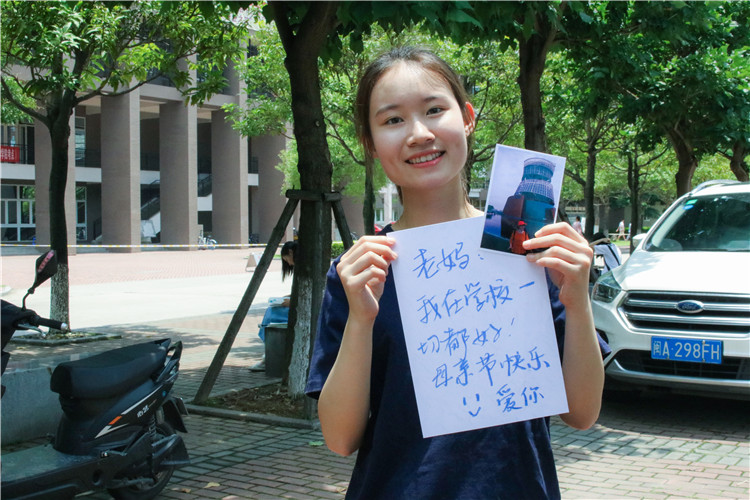 老妈:
我在学校一
切都好!
母亲节快乐
爱你
Ford
闽A·298FH